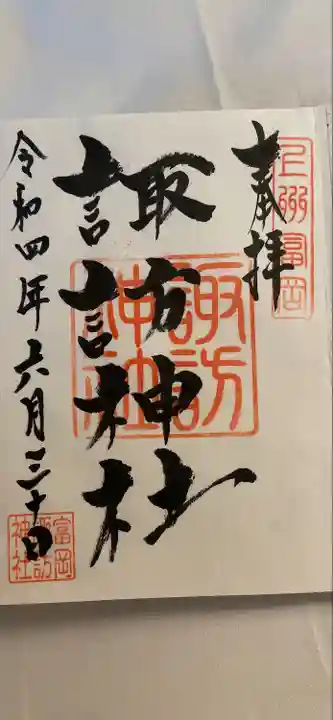 奉拝
上州富岡
諏訪神社
諏訪神社
令和四年六月三十日
富岡諏訪神社